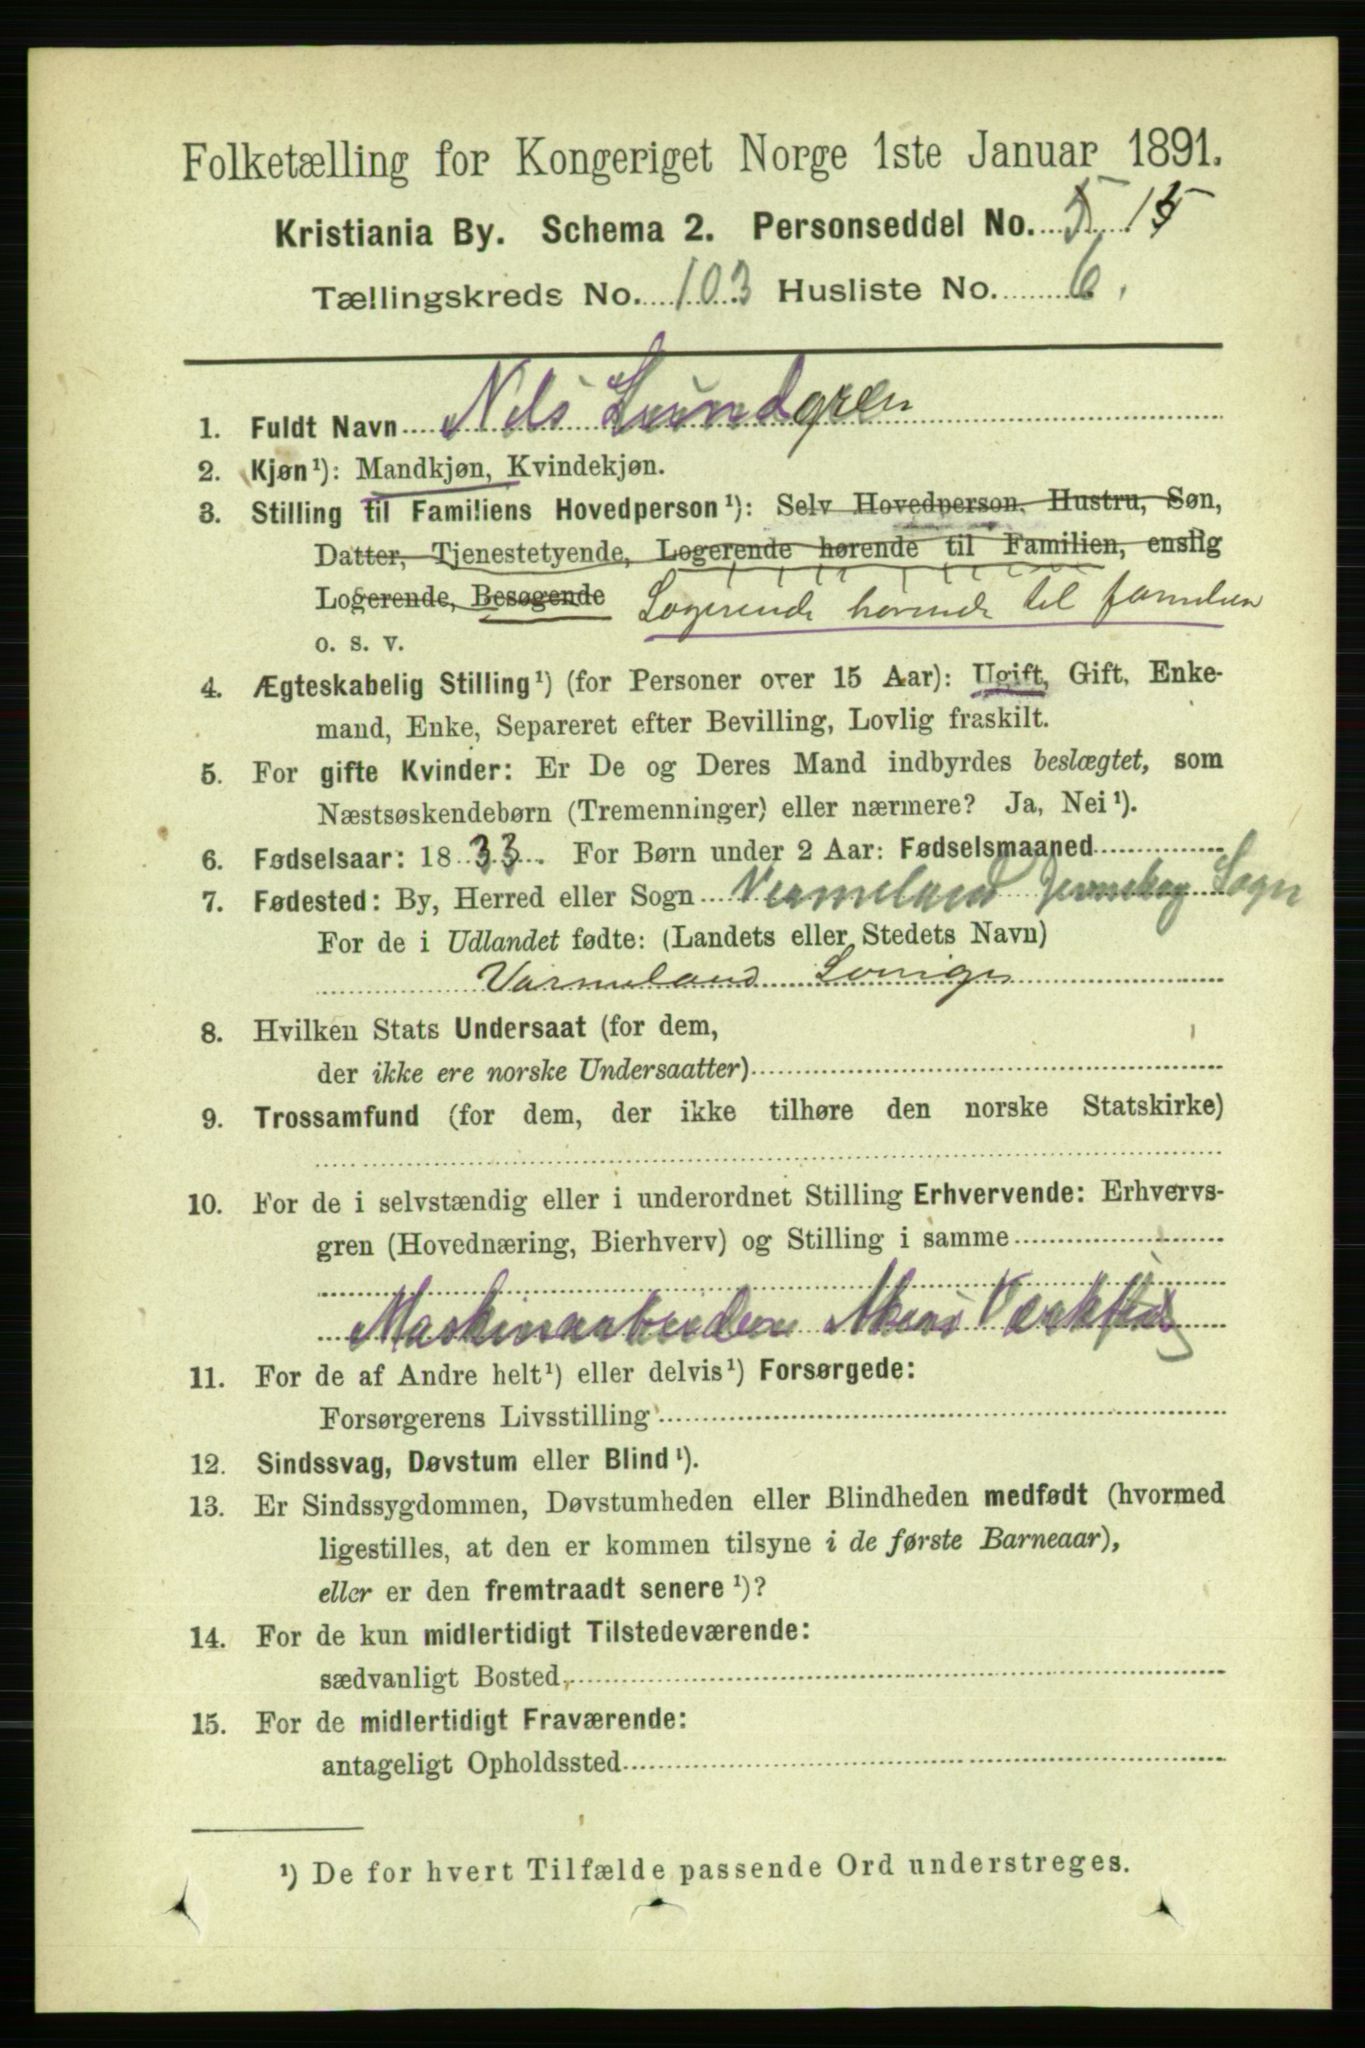 Folketælling for Kongeriget Norge 1ste Januar 1891.
Kristiania By. Schema 2. Personseddel No. 5 15
Tællingskreds No. 103 Husliste No. 6.
1. Fuldt Navn Nils Lundgren
2. Kjøn¹): Mandkjøn, Kvindekjøn.
3. Stilling til Familiens Hovedperson¹): Selv Hovedperson, Hustru, Søn,
Datter, Tjenestetyende, Logerende hørende til Familien, enslig
Logerende, Besøgende Logerende hørende til familien
o. s. v.
4. Ægteskabelig Stilling¹) (for Personer over 15 Aar): Ugift, Gift, Enke-
mand, Enke, Separeret efter Bevilling, Lovlig fraskilt.
5. For gifte Kvinder: Er De og Deres Mand indbyrdes beslægtet, som
Næstsøskendebørn (Tremenninger) eller nærmere? Ja, Nei¹).
6. Fødselsaar: 1833. For Børn under 2 Aar: Fødselsmaaned
7. Fødested: By, Herred eller Sogn Vermeland Jernskog Sogn
For de i Udlandet fødte: (Landets eller Stedets Navn)
Varmeland Sverige
8. Hvilken Stats Undersaat (for dem,
der ikke ere norske Undersaatter)
9. Trossamfund (for dem, der ikke tilhøre den norske Statskirke)
10. For de i selvstændig eller i underordnet Stilling Erhvervende: Erhvervs-
gren (Hovednæring, Bierhverv) og Stilling i samme
Maskinarbeider Akers
11. For de af Andre helt¹) eller delvis¹) Forsørgede:
Forsørgerens Livsstilling
12. Sindssvag, Døvstum eller Blind¹).
13. Er Sindssygdommen, Døvstumheden eller Blindheden medfødt (hvormed
ligestilles, at den er kommen tilsyne i de første Barneaar),
eller er den fremtraadt senere¹)?
14. For de kun midlertidigt Tilstedeværende:
sædvanligt Bosted
15. For de midlertidigt Fraværende:
antageligt Opholdssted
¹) De for hvert Tilfælde passende Ord understreges.